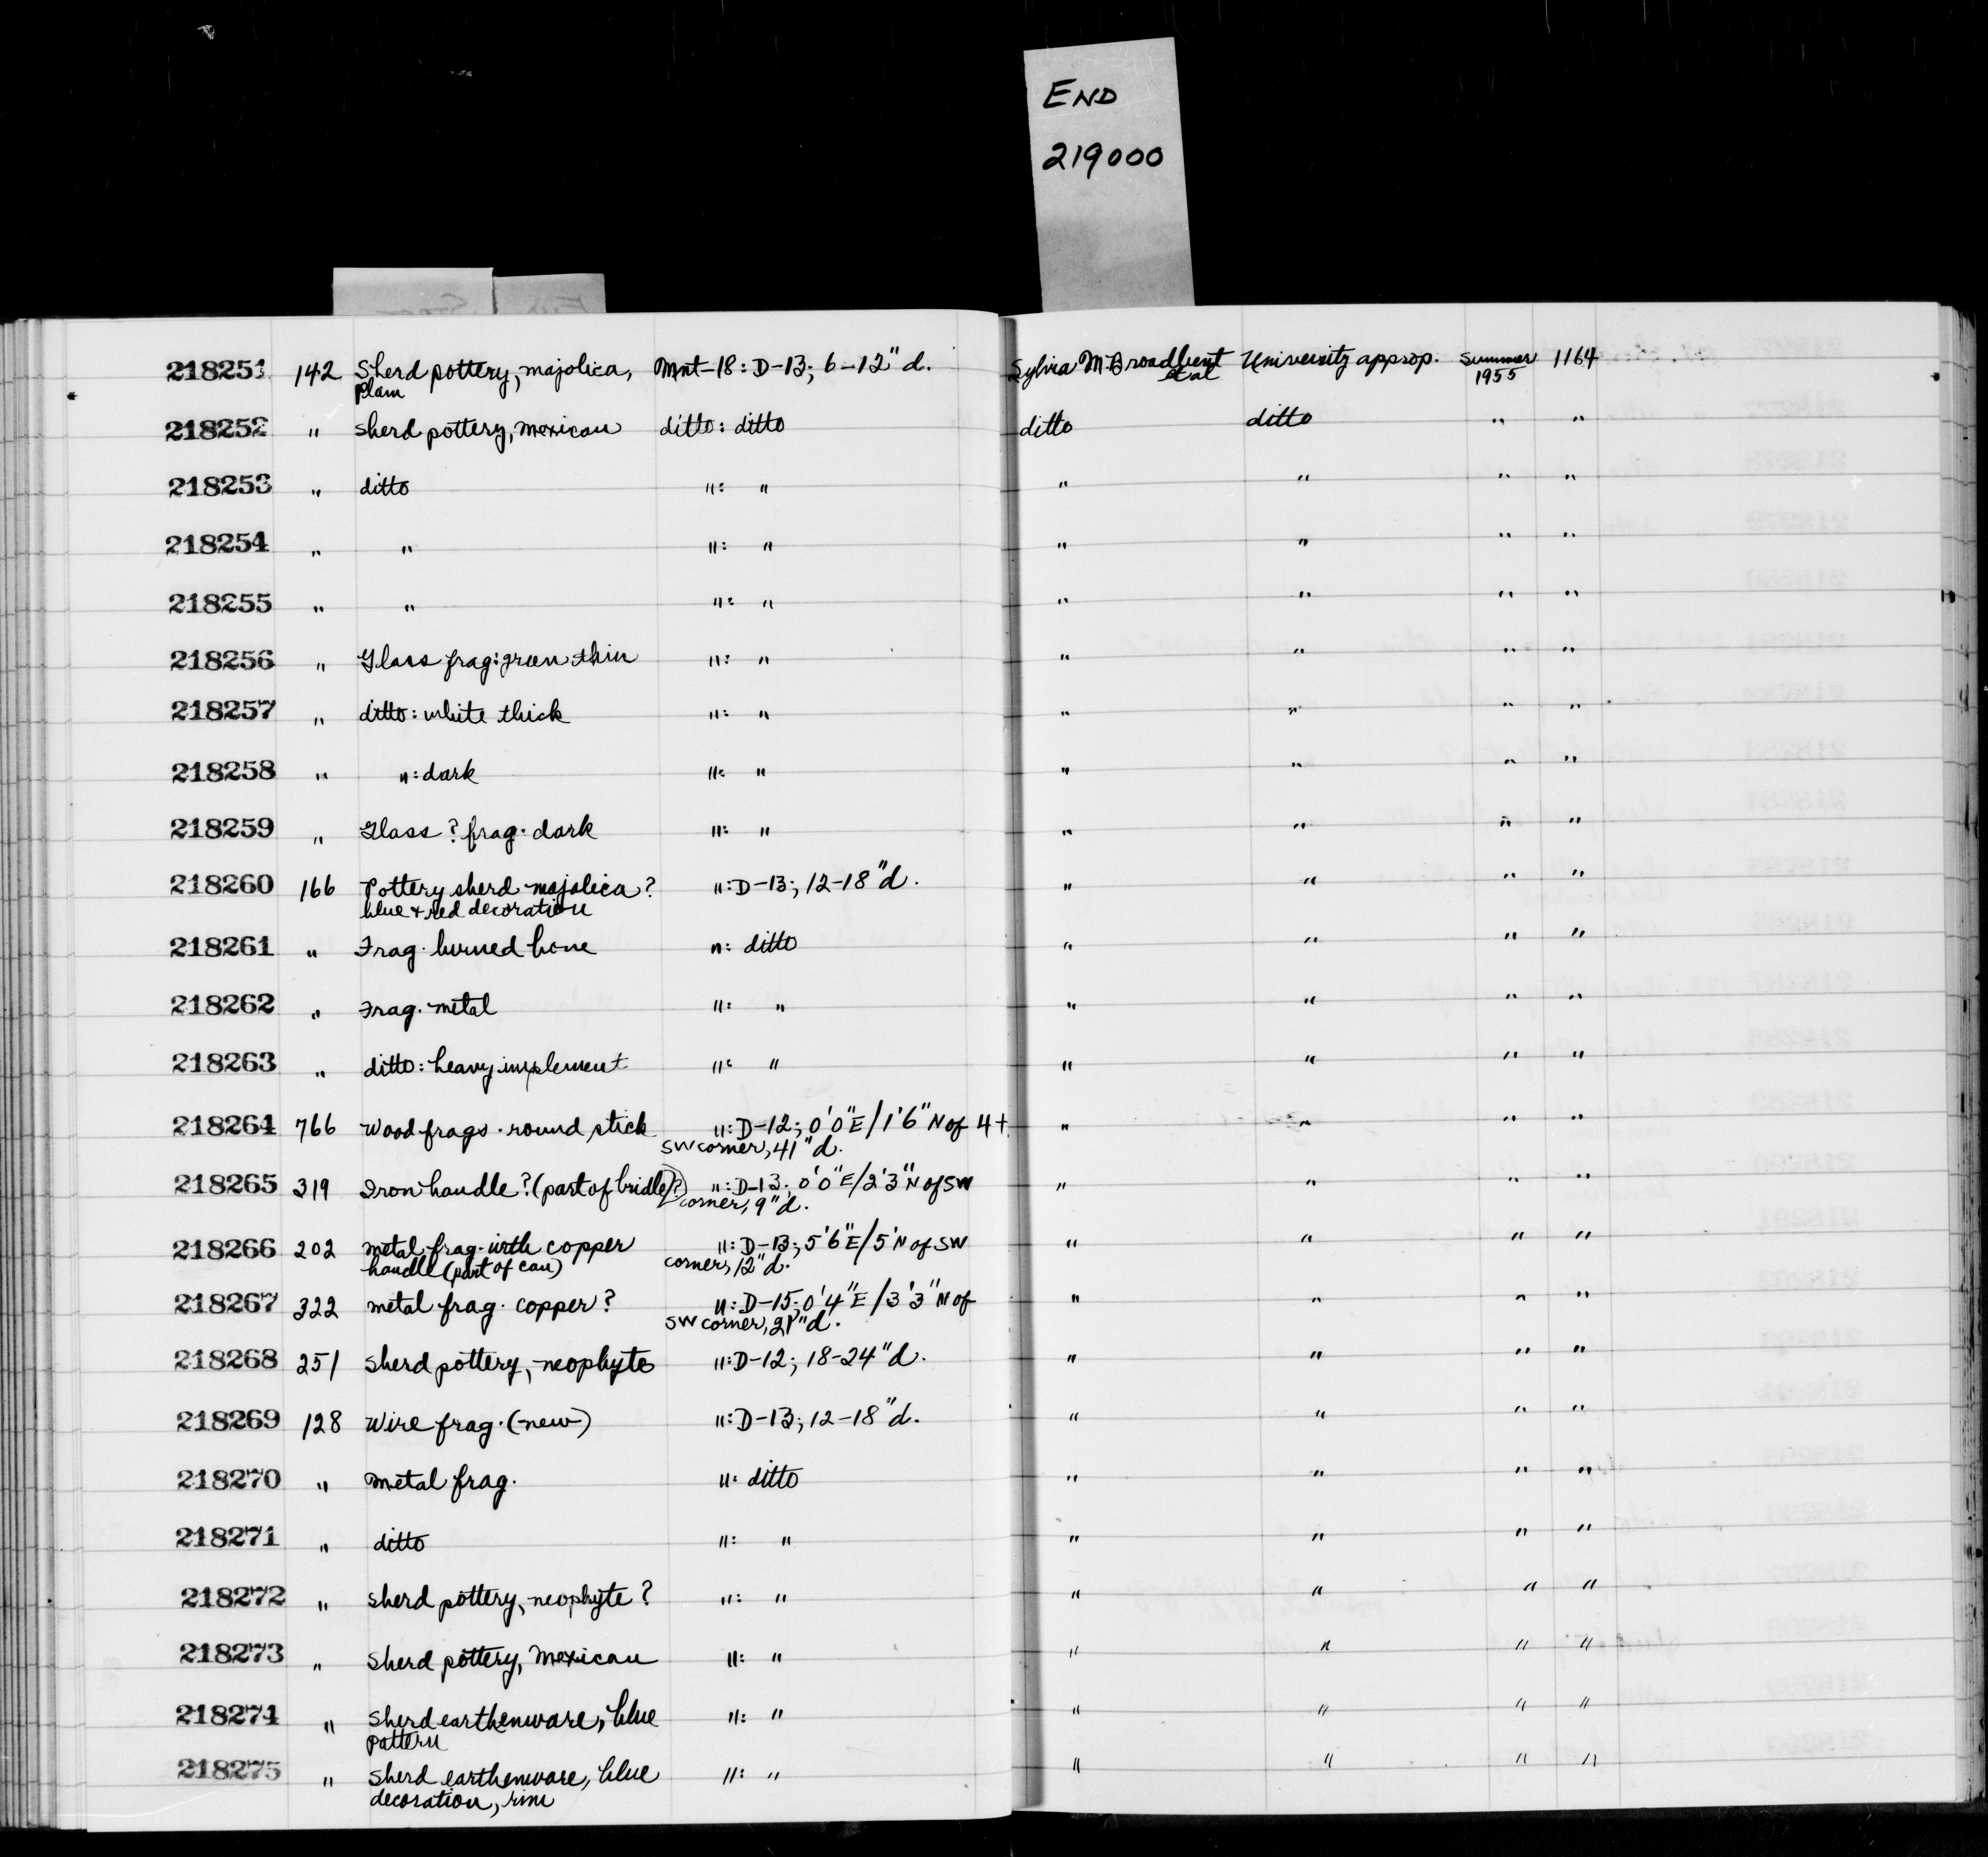 END
219000
218251 142 Sherd pottery, majolica, Mnt-18: D-13; 6-12" d. Sylvia M. Broadbent University approp. Summer 1164
plain et al 1955
218252 " Sherd pottery, Mexican ditto: ditto ditto ditto " "
218253 " ditto ": " " " " "
218254 " " ": " " " " "
218255 " " ": " " " " "
218256 " Glass frag: green thin ": " " " " "
218257 " ditto: white thick ": " " " " "
218258 " ": dark ": " " " " "
218259 " Glass? frag. dark ": " " " " "
218260 166 Pottery sherd majolica? ": D-13; 12-18" d. " " " "
blue + red decoration
218261 " Frag. burned bone ": ditto " " " "
218262 " Frag. metal ": " " " " "
218263 " ditto: heavy implement ": " " " " "
218264 766 Wood frags. round stick ": D-12; 0'0"E/1'6"N of 4+ " " " "
SW corner, 41" d.
218265 319 Iron handle? (part of bridle?) ": D-13; 0'0"E/2'3"N of SW " " " "
corner, 9" d.
218266 202 metal frag. with copper ": D-13; 5'6"E/5'N of SW " " " "
handle (part of can) corner, 12" d.
218267 322 metal frag. copper? ": D-15; 0'4"E/3'3"N of " " " "
SW corner, 21" d.
218268 251 Sherd pottery, neophyte ": D-12; 18-24" d. " " " "
218269 128 Wire frag. (new) ": D-13; 12-18" d. " " " "
218270 " Metal frag. ": ditto " " " "
218271 " ditto ": " " " " "
218272 " Sherd pottery, neophyte? ": " " " " "
218273 " Sherd pottery, Mexican ": " " " " "
218274 " Sherd earthenware, blue ": " " " " "
pattern
218275 " Sherd earthenware, blue ": " " " " "
decoration, rim